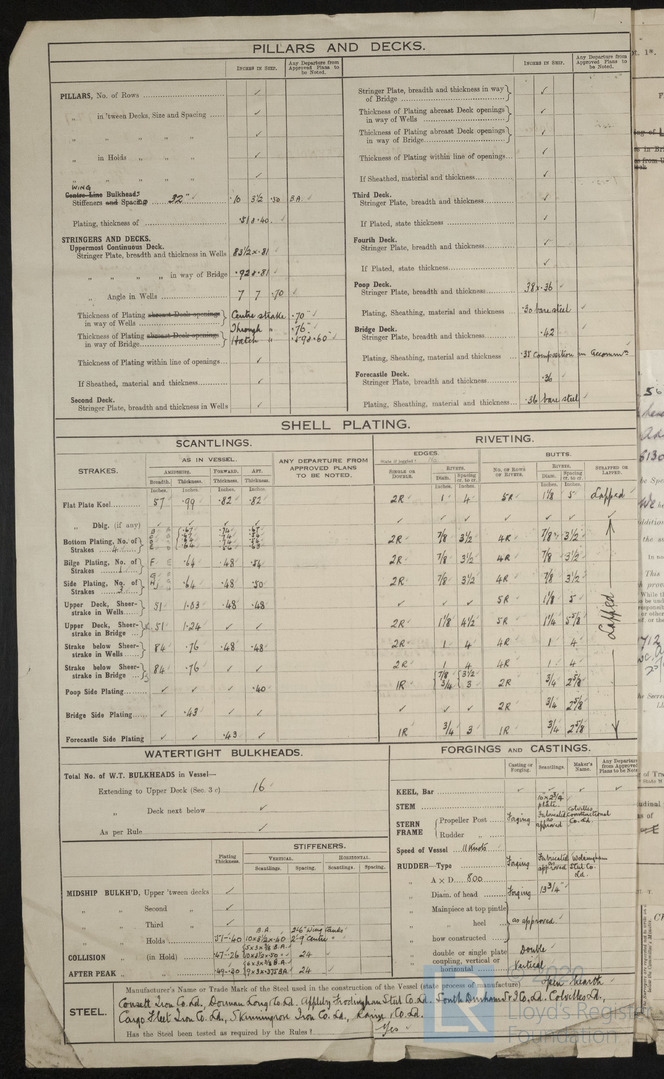 PILLARS AND DECKS.
INCHES IN SHIP.
Any Departure from Approved Plans to be Noted.
PILLARS, No. of Rows
„ in 'tween Decks, Size and Spacing
„ „ „ „
„ in Holds „ „
„ „ „ „
WING
Centre Line Bulkheads
Stiffeners and Spacing 32" 10 3½ .50 B.A.
Plating, thickness of .51 & .40
STRINGERS AND DECKS.
Uppermost Continuous Deck.
Stringer Plate, breadth and thickness in Wells 83½ × .81
„ „ „ „ in way of Bridge .92 & .81
„ Angle in Wells 7 7 .70
Thickness of Plating abreast Deck openings in way of Wells Centre strake .70
Thickness of Plating abreast Deck openings in way of Bridge Through „ .76
Hatch „ .59 & .60
Thickness of Plating within line of openings
If Sheathed, material and thickness
Second Deck.
Stringer Plate, breadth and thickness in Wells
INCHES IN SHIP.
Any Departure from Approved Plans to be Noted.
Stringer Plate, breadth and thickness in way of Bridge
Thickness of Plating abreast Deck openings in way of Wells
Thickness of Plating abreast Deck openings in way of Bridge
Thickness of Plating within line of openings
If Sheathed, material and thickness
Third Deck.
Stringer Plate, breadth and thickness
If Plated, state thickness
Fourth Deck.
Stringer Plate, breadth and thickness
If Plated, state thickness
Poop Deck.
Stringer Plate, breadth and thickness 38 × .36
Plating, Sheathing, material and thickness .30 bare steel
Bridge Deck.
Stringer Plate, breadth and thickness .42
Plating, Sheathing, material and thickness .35 Composition in Accomm
Forecastle Deck.
Stringer Plate, breadth and thickness .36
Plating, Sheathing, material and thickness .36 bare steel
SHELL PLATING.
SCANTLINGS.
RIVETING.
STRAKES.
AS IN VESSEL.
AMIDSHIPS. FORWARD. AFT.
Breadth. Thickness. Thickness. Thickness.
Inches. Inches. Inches. Inches.
ANY DEPARTURE FROM APPROVED PLANS TO BE NOTED.
EDGES.
SINGLE OR DOUBLE.
RIVETS.
Diam. Spacing cr. to cr.
Inches. Inches.
BUTTS.
NO. OF ROWS OF RIVETS.
RIVETS.
Diam. Spacing cr. to cr.
Inches. Inches.
STRAPPED OR LAPPED.
Flat Plate Keel 57 .99 .82 .82 2R 1 4 5R 1⅛ 5 Lapped
„ Dblg. (if any)
Bottom Plating, No. of Strakes 4 2R ⅞ 3½ 4R ⅞ 3½
Bilge Plating, No. of Strakes 1 F .64 .48 .54 2R ⅞ 3½ 4R ⅞ 3½
Side Plating, No. of Strakes 3 .64 .48 .50 2R ⅞ 3½ 4R ⅞ 3½
Upper Deck, Sheerstrake in Wells 51 1.03 .48 .48 5R 1⅛ 5
Upper Deck, Sheerstrake in Bridge 51 1.24 2R 1⅛ 4½ 5R 1¼ 5⅝
Lapped
Strake below Sheerstrake in Wells 84 .76 .48 .48 2R 1 4 4R 1 4
Strake below Sheerstrake in Bridge 84 .76 2R 1 4 4R 1 4
Poop Side Plating .40 1R ⅞ 3½ ¾ 3 2R ¾ 2⅝
Bridge Side Plating .43 2R ¾ 2⅝
Forecastle Side Plating .43 1R ¾ 3 1R ¾ 2⅝
WATERTIGHT BULKHEADS.
Total No. of W.T. BULKHEADS in Vessel—
Extending to Upper Deck (Sec. 3 c) 16
„ Deck next below
As per Rule
Plating Thickness.
STIFFENERS.
VERTICAL. HORIZONTAL.
Scantlings. Spacing. Scantlings. Spacing.
MIDSHIP BULKH'D, Upper 'tween decks
„ „ Second „
„ „ Third „
B.A. 2'-6" Wing Tanks
„ „ Holds .51-.40 10×3½×.40 2'-9" Centre „
COLLISION „ (in Hold) .47-.26 24
AFTER PEAK „ „ .49-.30 24
FORGINGS AND CASTINGS.
Casting or Forging. Scantlings. Maker's Name. Any Departure from Approved Plans to be Noted
KEEL, Bar
STEM 10 × 2¾" plate
STERN FRAME
Propeller Post Forging Fabricated as approved Colvilles Constructional Co. Ld.
Rudder „
Speed of Vessel 11 Knots
RUDDER—Type Forging Fabricated as approved Wolsingham Steel Co. Ld.
„ A × D 800
„ Diam. of head Forging 13¾"
„ Mainpiece at top pintle
„ „ heel as approved
„ how constructed
„ double or single plate Double
„ coupling, vertical or horizontal Vertical
STEEL.
Manufacturer's Name or Trade Mark of the Steel used in the construction of the Vessel (state process of manufacture) Open Hearth
Consett Iron Co. Ld., Dorman Long & Co. Ld. Appleby Frodingham Steel Co. Ld. South Durham S & I Co. Ld. Colvilles Ld.,
Cargo Fleet Iron Co. Ld., Skinningrove Iron Co. Ld.,
Has the Steel been tested as required by the Rules? Yes
© 2020
Lloyd's Register
Foundation